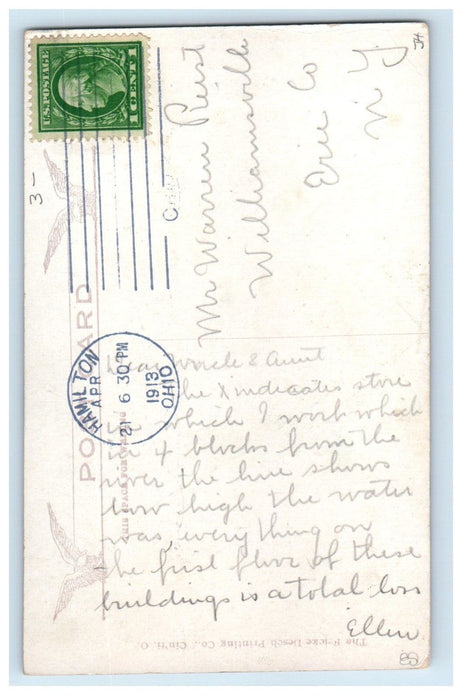 U.S. POSTAGE
1 CENT
JH
3-
HAMILTON
APR
21
6 30 PM
1913
OHIO
POST CARD
THIS SPACE FOR
Mr Warren Reist
Williamsville
Erie Co
N Y
Dear Uncle & Aunt
The X indicates store
in which I work which
is 4 blocks from the
river the line shows
how high the water
was, everything on
the first floor of these
buildings is a total loss
Ellen
The Fricke Desch Printing Co., Cin'ti, O.